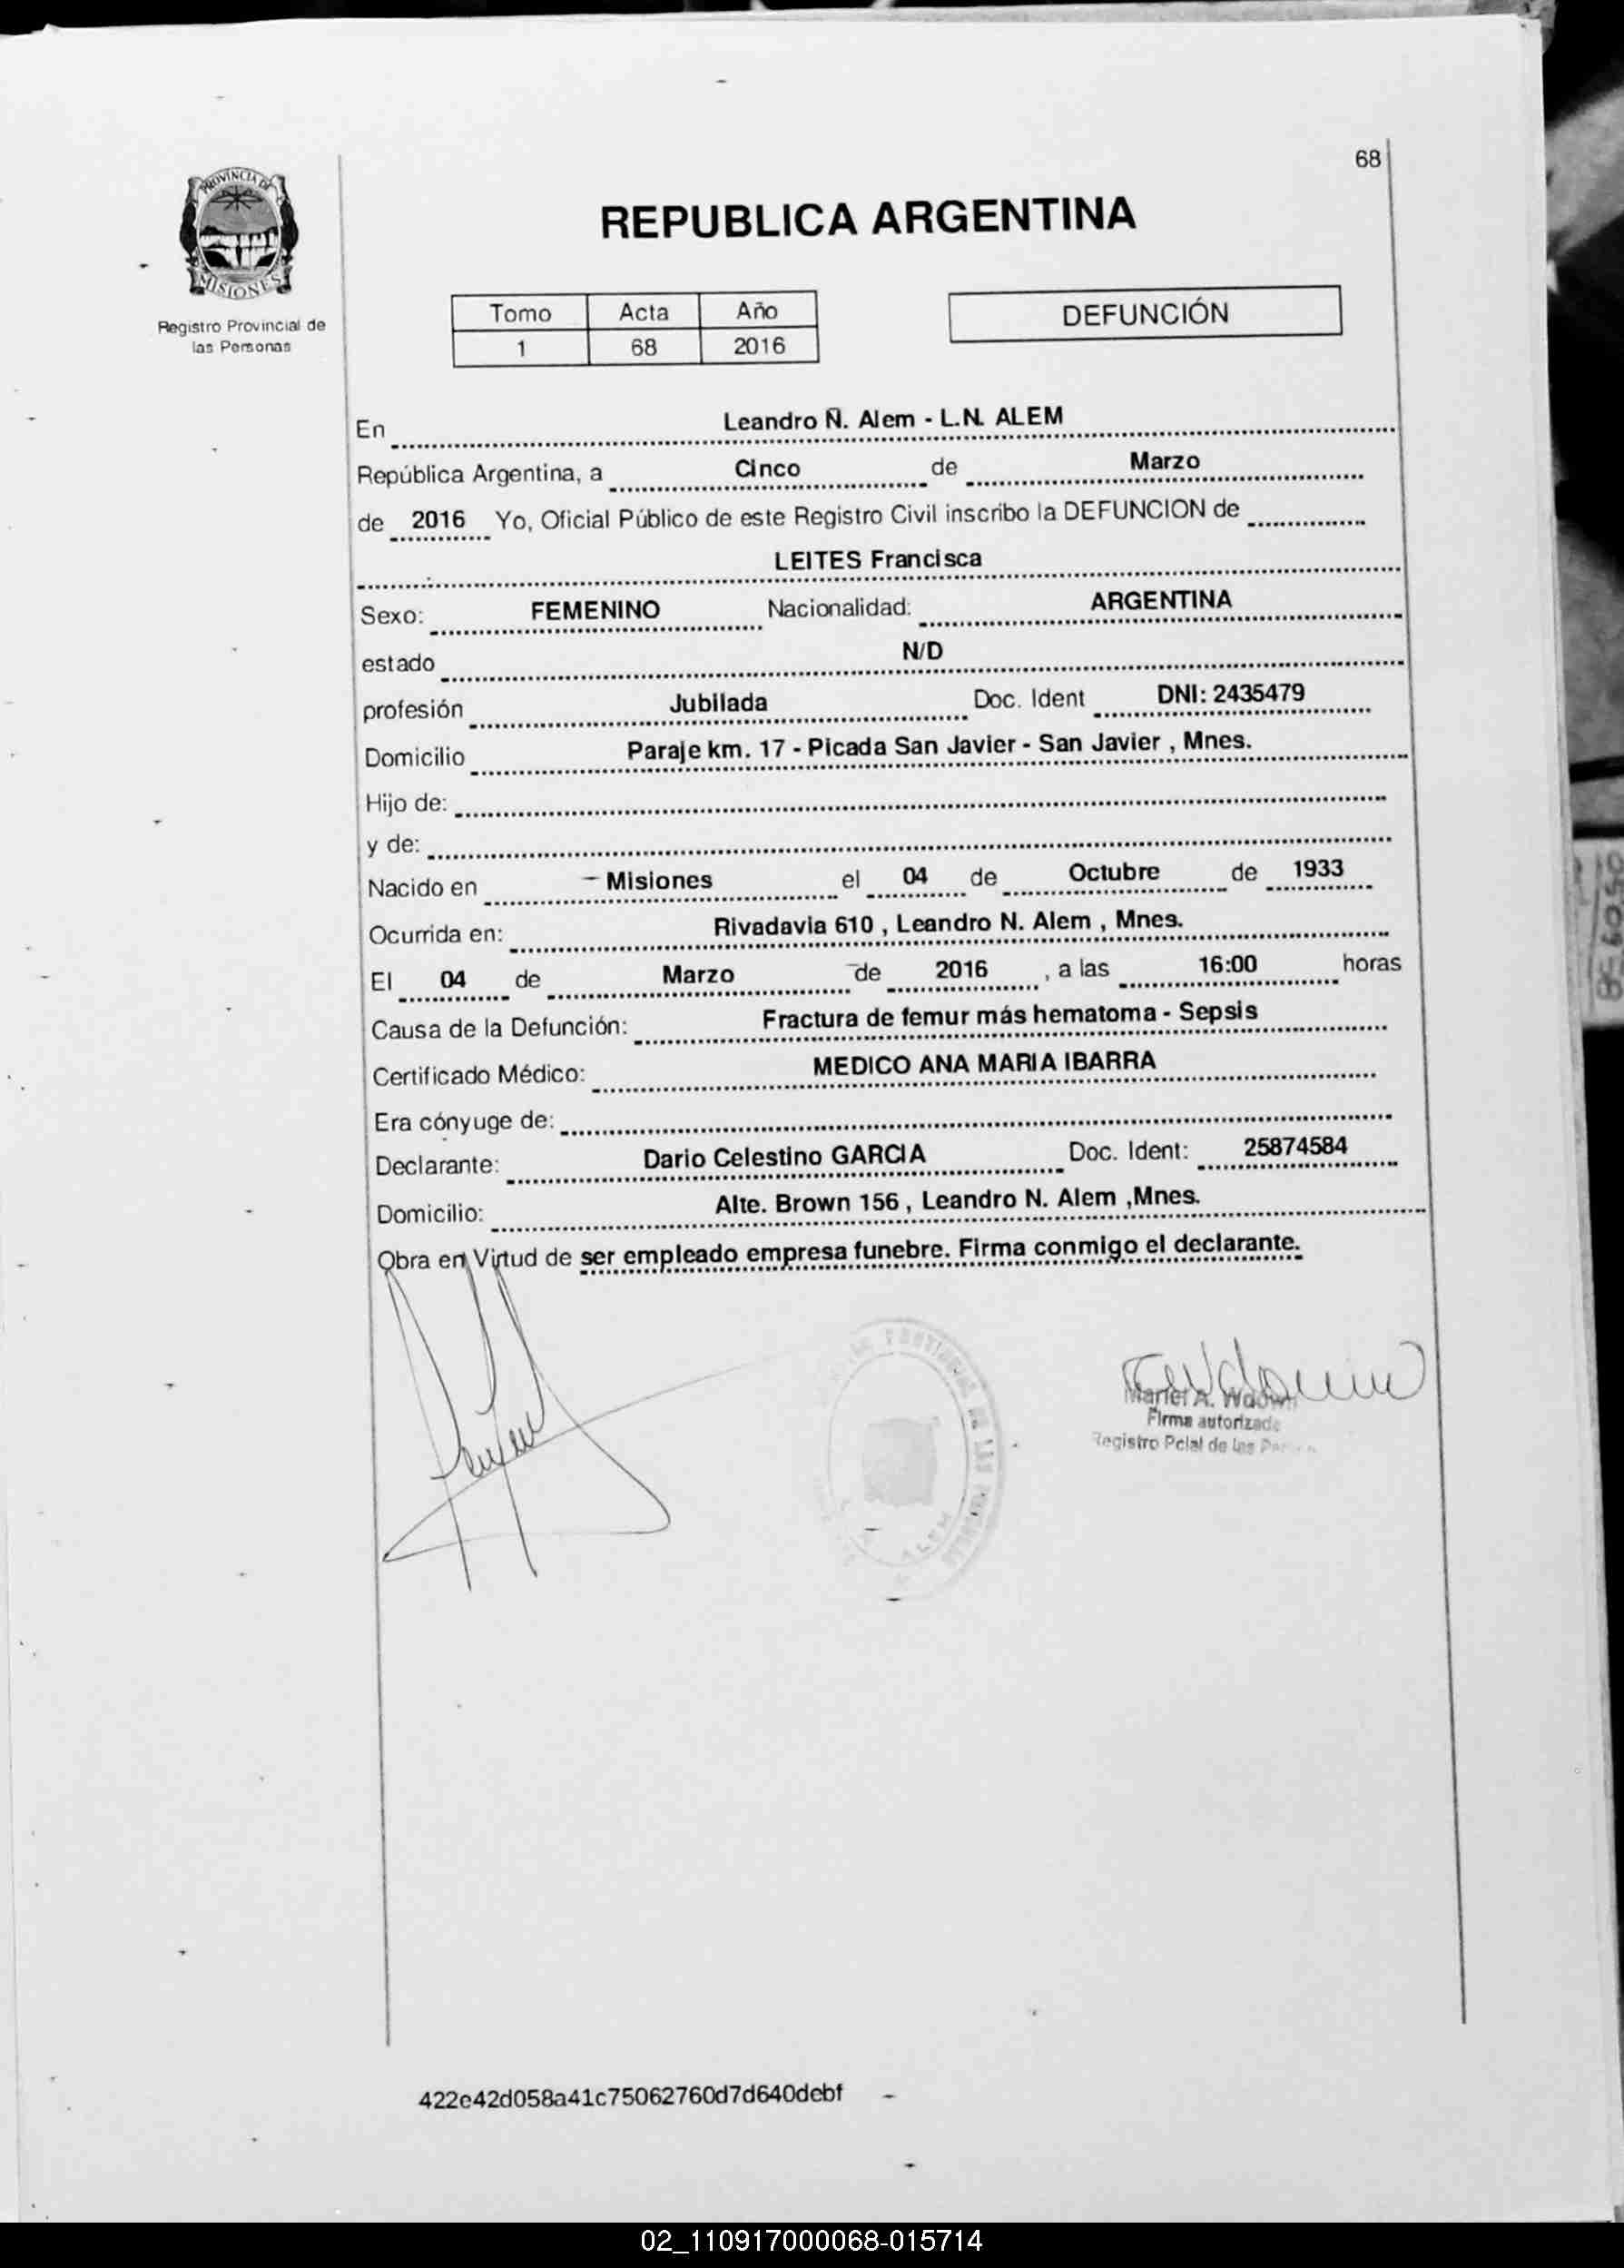 68
PROVINCIA DE
MISIONES
Registro Provincial de
las Personas
REPUBLICA ARGENTINA
Tomo Acta Año
1 68 2016
DEFUNCIÓN
En Leandro N. Alem - L.N. ALEM
República Argentina, a Cinco de Marzo
de 2016 Yo, Oficial Público de este Registro Civil inscribo la DEFUNCION de
LEITES Francisca
Sexo: FEMENINO Nacionalidad: ARGENTINA
estado N/D
profesión Jubilada Doc. Ident DNI: 2435479
Domicilio Paraje km. 17 - Picada San Javier - San Javier , Mnes.
Hijo de:
y de:
Nacido en Misiones el 04 de Octubre de 1933
Ocurrida en: Rivadavia 610 , Leandro N. Alem , Mnes.
El 04 de Marzo de 2016 , a las 16:00 horas
Causa de la Defunción: Fractura de femur más hematoma - Sepsis
Certificado Médico: MEDICO ANA MARIA IBARRA
Era cónyuge de:
Declarante: Dario Celestino GARCIA Doc. Ident: 25874584
Domicilio: Alte. Brown 156 , Leandro N. Alem ,Mnes.
Obra en Virtud de ser empleado empresa funebre. Firma conmigo el declarante.
Mariel A.
Firma autorizada
Registro Pcial de las
422e42d058a41c75062760d7d640debf
02_110917000068-015714